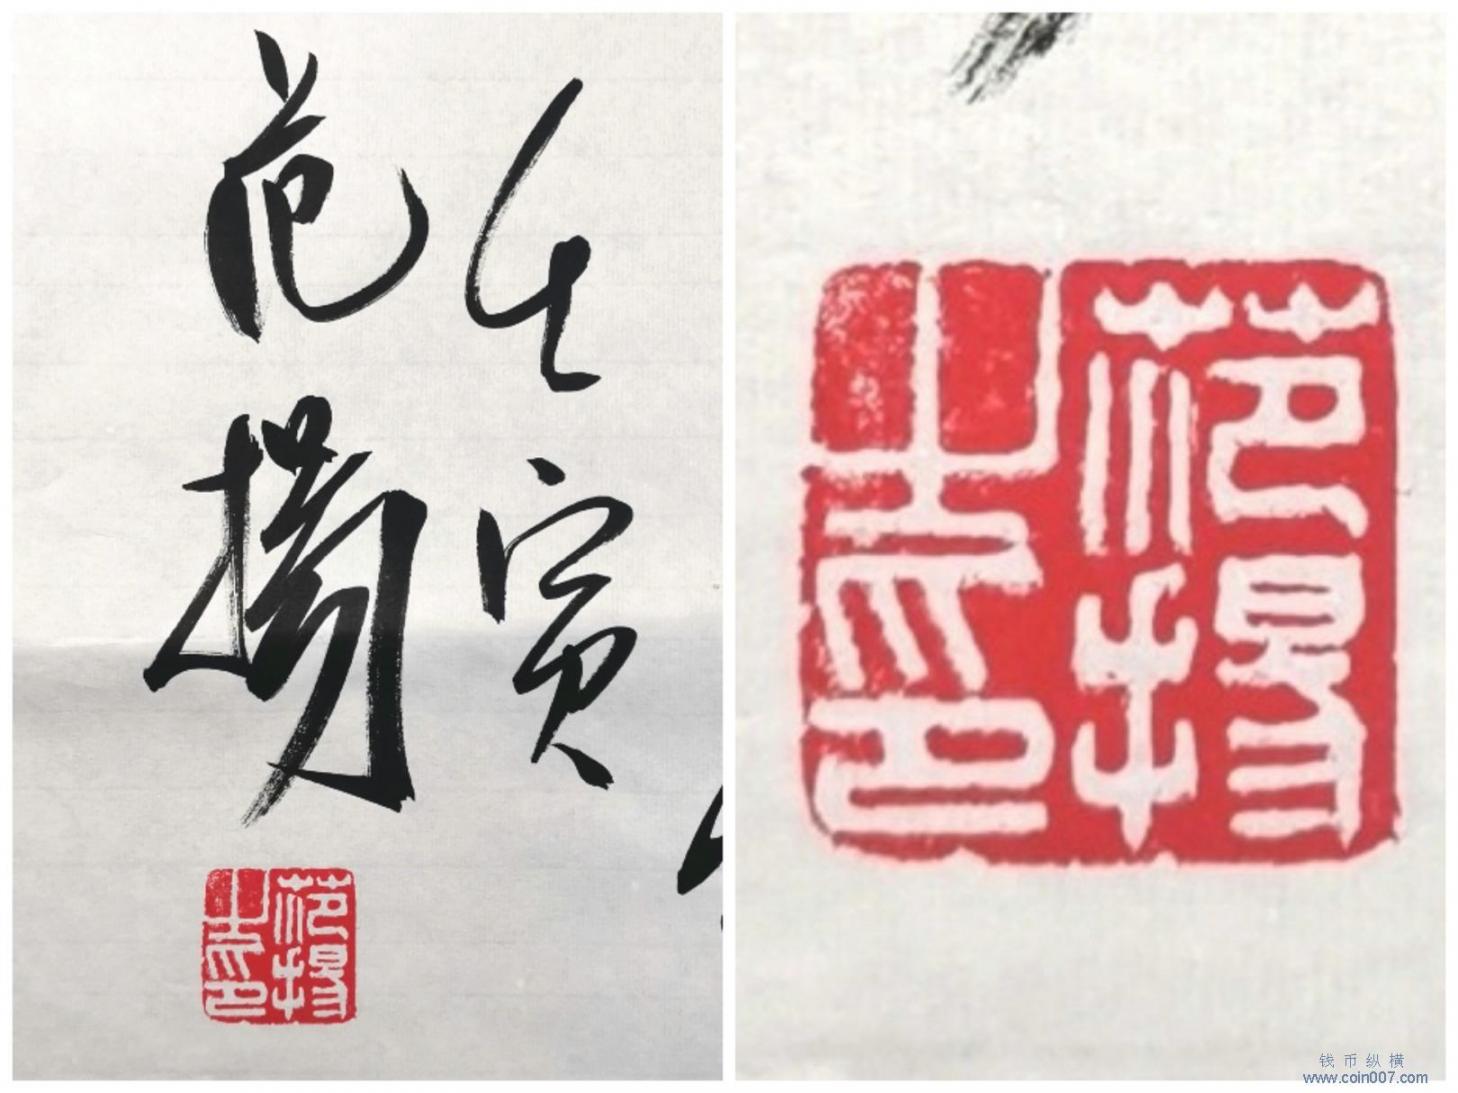 壬寅
范揚
范揚
之印
范揚
之印
钱币纵横
www.coin007.com